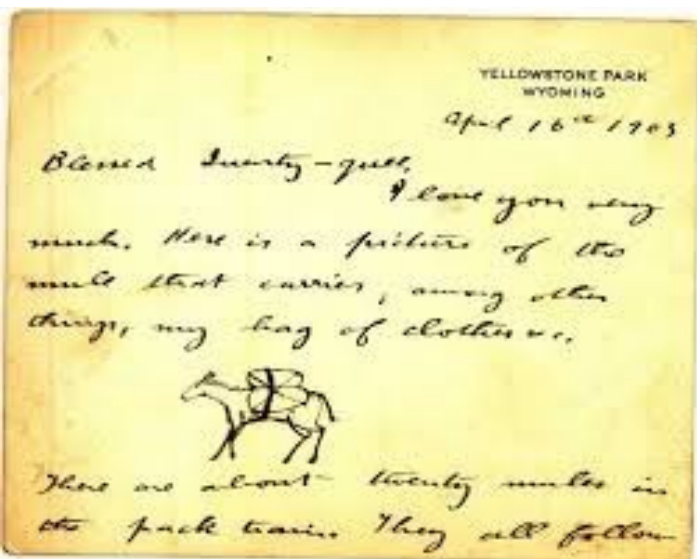 YELLOWSTONE PARK
WYOMING
April 16th 1903
Blessed Quenty-quee,
I love you very
much. Here is a picture of the
mule that carries, among other
things, my bag of clothes &c.
There are about twenty mules in
the pack train. They all follow